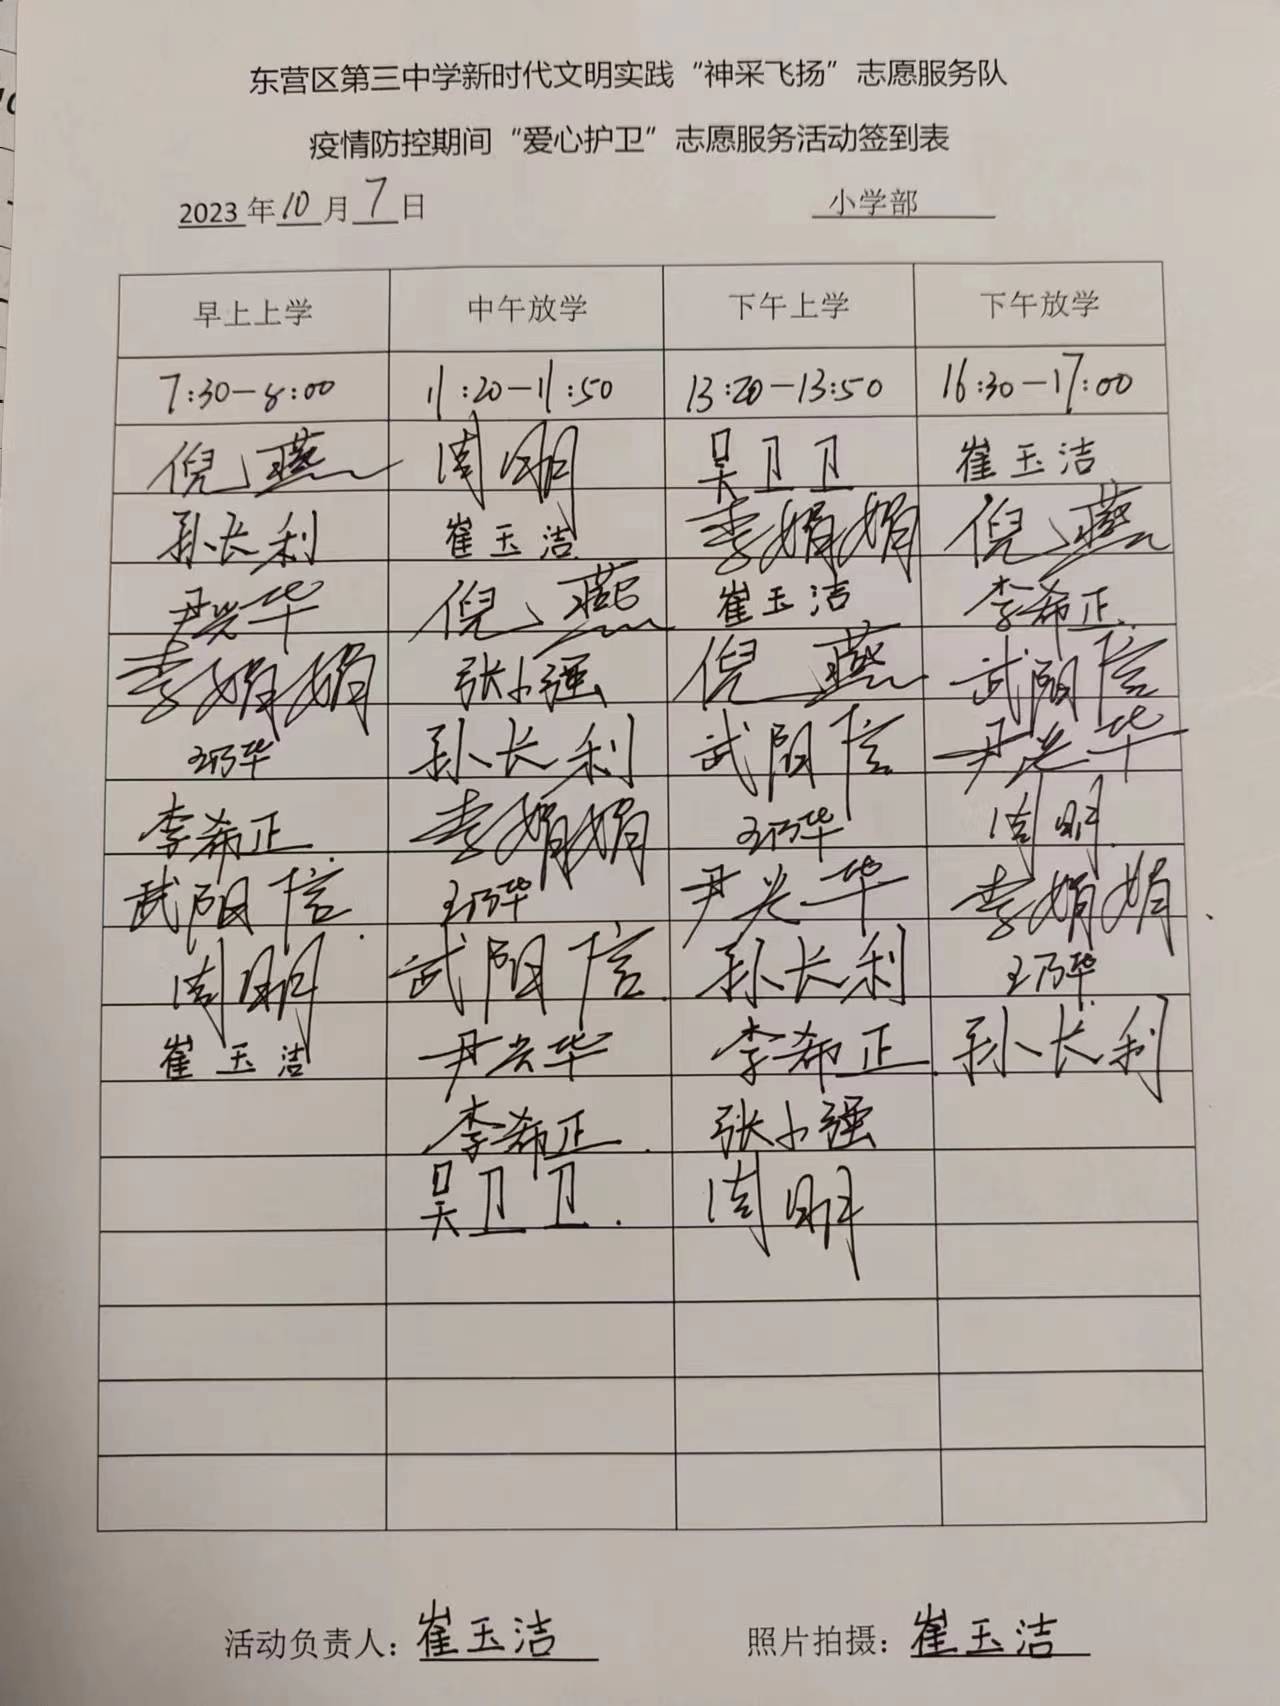 东营区第三中学新时代文明实践“神采飞扬”志愿服务队
疫情防控期间“爱心护卫”志愿服务活动签到表
2023年10月7日 小学部
早上上学 中午放学 下午上学 下午放学
7:30-8:00 11:20-11:50 13:20-13:50 16:30-17:00
倪燕 周明 吴卫卫 崔玉洁
孙长利 崔玉洁 李娟娟 倪燕
尹兴华 倪燕 崔玉洁 李希正
李娟娟 张小强 倪燕 武阳信
王乃华 孙长利 武阳信 尹兴华
李希正 李娟娟 王乃华 周明
武阳信 王乃华 尹兴华 李娟娟
周明 武阳信 孙长利 王乃华
崔玉洁 尹兴华 李希正 孙长利
李希正 张小强
吴卫卫 周明
活动负责人：崔玉洁 照片拍摄：崔玉洁